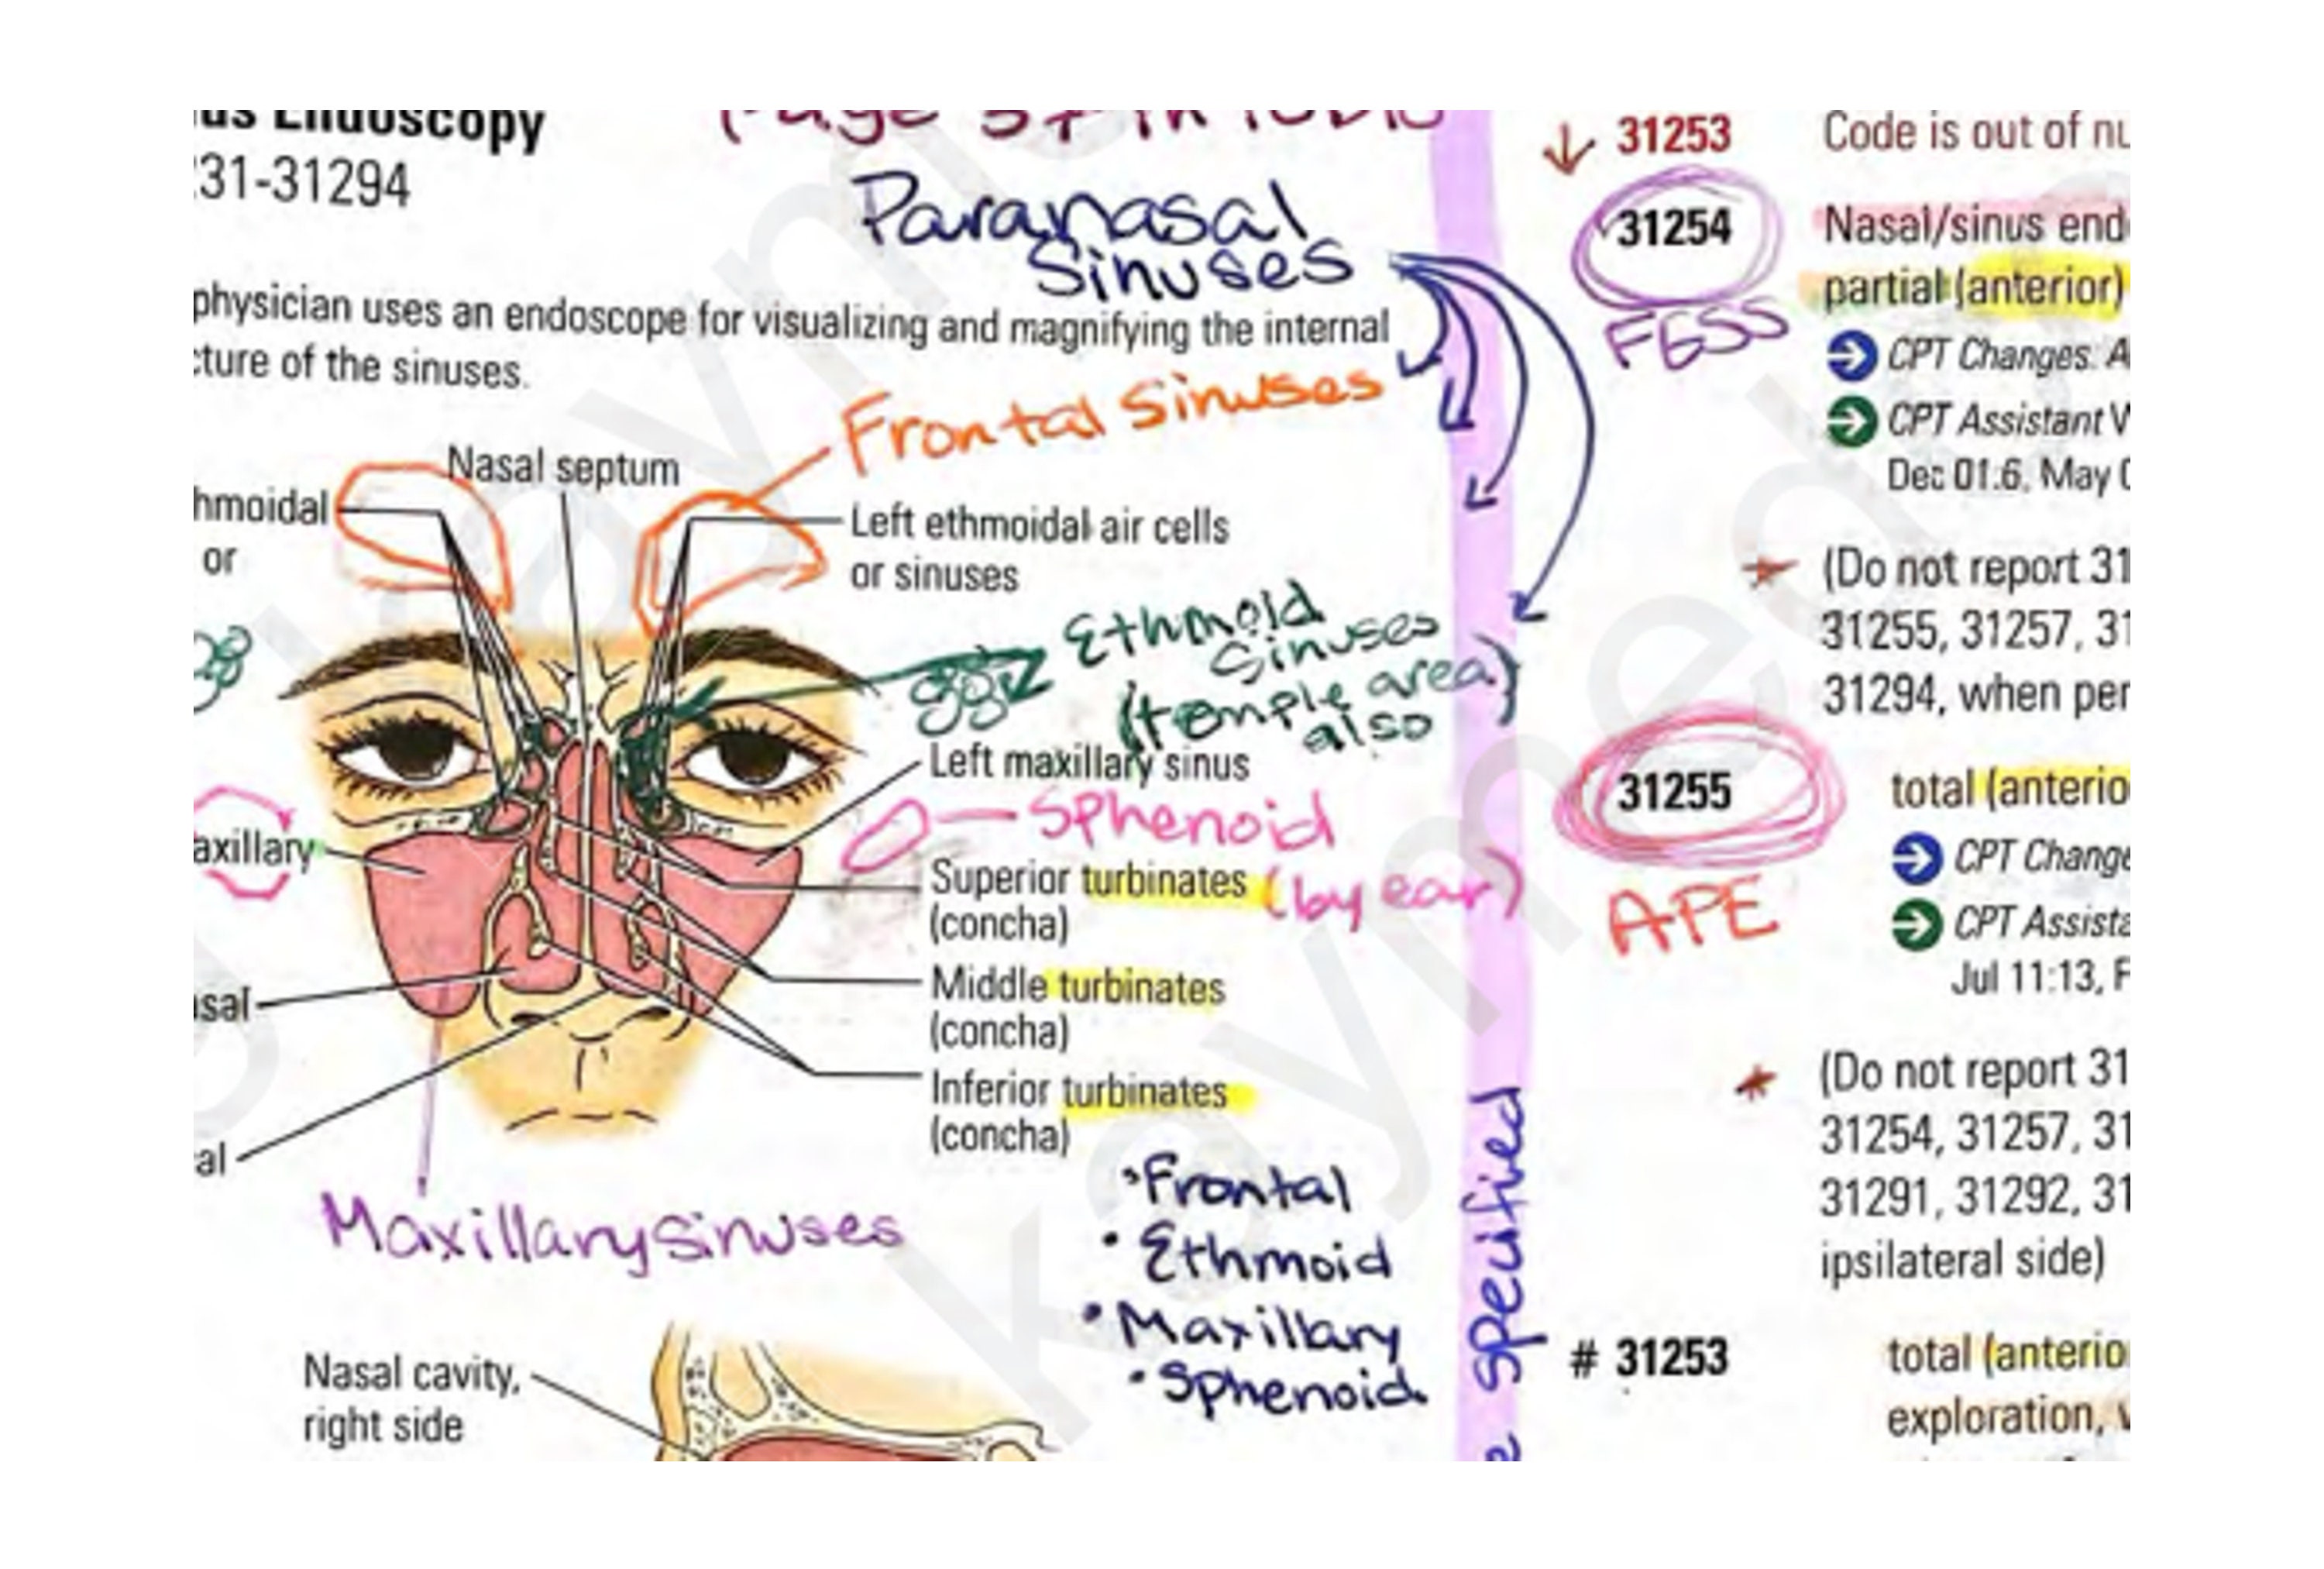 Endoscopy
31-31294
Paranasal
Sinuses
physician uses an endoscope for visualizing and magnifying the internal
cture of the sinuses.
Frontal Sinuses
Nasal septum
hmoidal
or
Left ethmoidal air cells
or sinuses
Ethmoid
Sinuses
(temple area)
also
Left maxillary sinus
Sphenoid
axillary
Superior turbinates (by ear)
(concha)
Middle turbinates
(concha)
sal
Inferior turbinates
(concha)
al
Maxillary sinuses
• Frontal
• Ethmoid
• Maxillary
• Sphenoid
Nasal cavity,
right side
specified
31253 Code is out of nu
31254 Nasal/sinus end
partial (anterior)
FESS
CPT Changes: A
CPT Assistant
Dec 01:6, May
(Do not report 31
31255, 31257, 31
31294, when per
31255 total (anterio
APE
CPT Change
CPT Assista
Jul 11:13, F
(Do not report 31
31254, 31257, 31
31291, 31292, 31
ipsilateral side)
# 31253 total (anterio
exploration,
kaymed